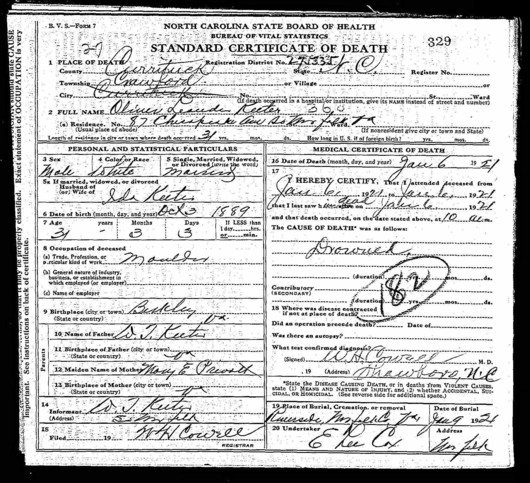 B. V. S.—FORM 7
NORTH CAROLINA STATE BOARD OF HEALTH
BUREAU OF VITAL STATISTICS
STANDARD CERTIFICATE OF DEATH
329
1 PLACE OF DEATH
Registration District No.
County Currituck
State N.C.
Register No.
Township Crawford
or Village
or
City
No.
St.
Ward
(If death occurred in a hospital or institution, give its NAME instead of street and number)
2 FULL NAME Oliver Keeter
(a) Residence. No. 87 Chesapeake
(Usual place of abode)
(If nonresident give city or town and State)
Length of residence in city or town where death occurred 31 yrs. mos. ds.
How long in U. S. if of foreign birth? yrs. mos. ds.
PERSONAL AND STATISTICAL PARTICULARS
3 Sex
4 Color or Race
5 Single, Married, Widowed, or Divorced (write the word)
Male White Married
5a If married, widowed, or divorced
Husband of
(or) Wife of
Ida Keeter
6 Date of birth (month, day, and year) Oct 3 1889
7 Age years Months Days If LESS than
1 day, hrs.
or min.
31 3 3
8 Occupation of deceased
(a) Trade, Profession, or
particular kind of work Moulder
(b) General nature of industry,
business, or establishment in
which employed (or employer)
(c) Name of employer
9 Birthplace (city or town) Berkley
(State or country) Va
Parents
10 Name of Father D. T. Keeter
11 Birthplace of Father (city or town)
(State or country) Va
12 Maiden Name of Mother Mary E
13 Birthplace of Mother (city or town)
(State or country) Va
14
Informant D. T. Keeter
(Address)
15
Filed , 19
W H Cowell
REGISTRAR
MEDICAL CERTIFICATE OF DEATH
16 Date of Death (month, day, and year) Jan 6 1921
17
I HEREBY CERTIFY, That I attended deceased from
Jan 6, 1921 to Jan 6, 1921
that I last saw h dead Jan 6, 1921
and that death occurred, on the date stated above, at 10 a.m.
The CAUSE OF DEATH* was as follows:
Drowned
182
(duration) yrs. mos. ds.
Contributory
(SECONDARY)
(duration) yrs. mos. ds.
18 Where was disease contracted
if not at place of death?
Did an operation precede death? Date of
Was there an autopsy?
What test confirmed diagnosis?
(Signed) W H Cowell M. D.
, 19 (Address) Shawboro, N.C
*State the DISEASE CAUSING DEATH, or in deaths from VIOLENT CAUSES, state (1) MEANS AND NATURE OF INJURY, and (2) whether ACCIDENTAL, SUICIDAL, OR HOMICIDAL. (See reverse side for additional space.)
19 Place of Burial, Cremation, or removal
Date of Burial
Riverside, Norfolk, Va Jan 9 1921
20 Undertaker
Address
E Lee Cox Norfolk